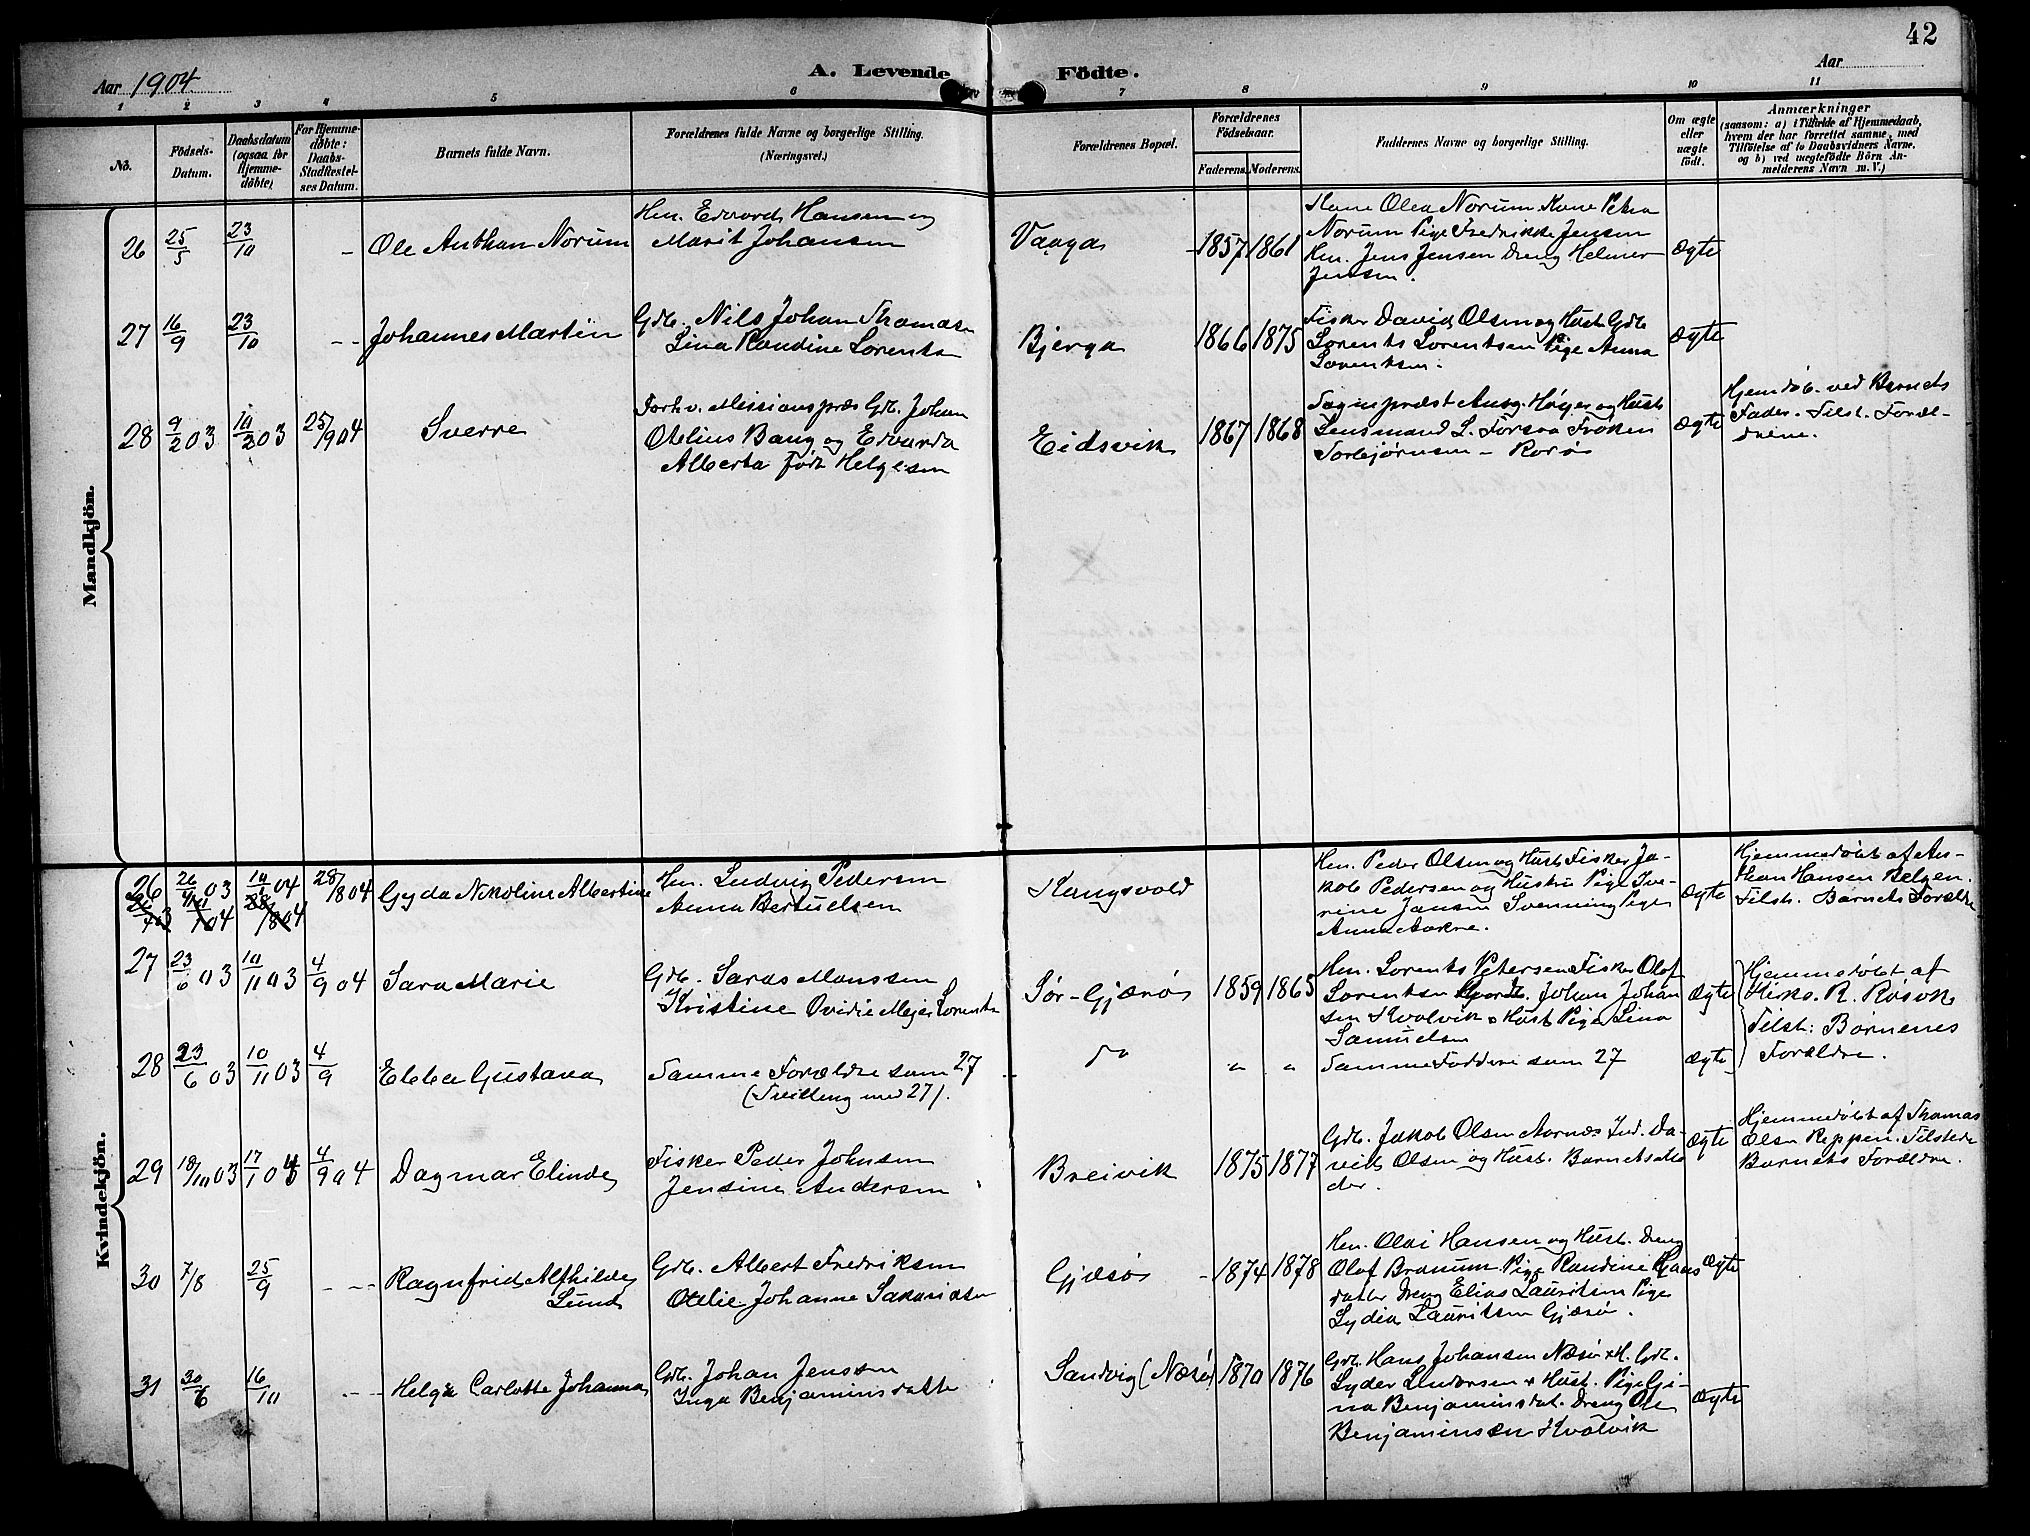 42
Aar 1904
A. Levende Födte.
Aar
1 2 3 4 5 6 7 8 9 10 11
No.
Födsels-
Datum.
Daabsdatum
(ogsaa for
Hjemme-
døbte)
For Hjemme-
døbte:
Daabs-
Stadfæstel-
ses Datum.
Barnets fulde Navn.
Forældrenes fulde Navne og borgerlige Stilling.
(Næringsvei.)
Forældrenes Bopæl.
Forældrenes
Födselsaar.
Faderens. Moderens.
Faddernes Navne og borgerlige Stilling.
Om ægte
eller
uægte
født.
Anmærkninger
(saasom: a) i Tilfælde af Hjemmedaab,
hvem der har forrettet samme, med
Tilföielse af to Daabsvidners Navne,
og b) ved uegtefödte Börn An-
melderens Navn m. V.)
Mandkjön.
26 25/5 23/10 - Ole Anthan Norum
Hm. Edvard Hansen og
Marit Johansen
Vaaga 1857 1861
Kone Olea Norum Kone Petra
Norum Pige Fredrikke Jensen
Hm. Jens Jensen Dreng Helmer
Jensen.
Ægte
27 16/9 23/10 - - Johannes Martin
Gdb. Nils Johan Thomasen
Lina Randine Lorents
Bjerga 1866 1875
Fisker David Olsen og Hust. Gdb
Lorents Lorentsen Pige Anna
Lorentsen.
Ægte
28 9/2 03 10/2 03 25/9 04 Sverre
Forhv. Missionspræs Gdb. Johan
Otelius Bang og Edvarda
Alberta født Helgesen
Eidsvik 1867 1868
Sogneprest Aug. Høyer og Hust
Lensmand L. Forsaa Frøken
Torbjørnsen - Rorø
Ægte
Hjemdøb. ved Barnets
Fader. Tilst. Foræl-
drene.
Kvindekjön.
26 26/4 03 28/8 04 Gyda Nikoline Albertine
Hm. Ludvig Pedersen
Anna Bertuelsen
Kangsvold
Hm. Peder Olsen og Hust Fisker Ja-
kob Pedersen og Hustru Pige Ive-
rine Jansen Svenning Pige
Anna
Ægte
Hjemmedøbt af An-
Hansen
Tilst. Barnets Forældre
27 23/6 03 10/11 03 4/9 04 Sara Marie
Gdb. Saras Monssen
Kristine Ovidie Mejer Lorents
Sør-Gjærø 1859 1865
Hm. Lorents Petersen Fisker Olof
Lorentsen Gaardb. Johan Johan
sen Kvalvik & Hust Pige Lina
Samuelsen
Ægte
Hjemmedøbt af
Kirks. R. Røsvk
Tilst: Børnenes
Forældre.
28 23/6 03 10/11 03 4/9 Ebba Gustava
Samme Forældre som 27
(Tvilling med 27).
Do " "
Samme Faddere som 27
Ægte
29 18/10 03 17/1 04 4/9 04 Dagmar Elinde
Fisker Peder Johnsen
Jensine Andersen
Breivik 1875 1877
Gdb. Jakob Olsen Aarnes Ind. Da-
vid Olsen og Hust. Barnets Fa
der.
Ægte
Hjemmedøbt af Thomas
Olsen Reppen. Tilstede
Barnets Forældre.
30 7/8 25/9 - - - Ragnfrid Alfhilde
Lund
Gdb. Albert Fredriksen
Otelie Johanne Sakariasen
Gjæsø 1874 1878
Hm. Olai Hansen og Hust. Dreng
Olaf Pige Randine Hans
datter Dreng Elias Lauritsen Pige
Lydia Lauritsen Gjæsø.
Ægte
31 30/6 16/10 - - - Helga Carlotte Johanna
Gdb. Johan Jenssen
Inga Benjaminsdatter
Sandvig (Næsø) 1870 1876
Gdb. Hans Johansen Næsø & H. Gdb.
Lyder Andersen & Hust. Pige Gi-
na Benjaminsdat. Dreng Ole
Benjaminsen Kvalvik
Ægte